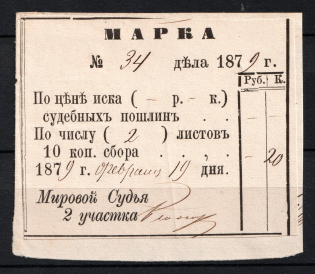 МАРКА
№ 34 дѣла 1879 г.
Руб. К.
По цѣнѣ иска ( — р. — к.)
судебныхъ пошлинъ . .
По числу ( 2 ) листовъ
10 коп. сбора . . , . — 20
1879 г. февраля 19 дня.
Мировой Судья
2 участка